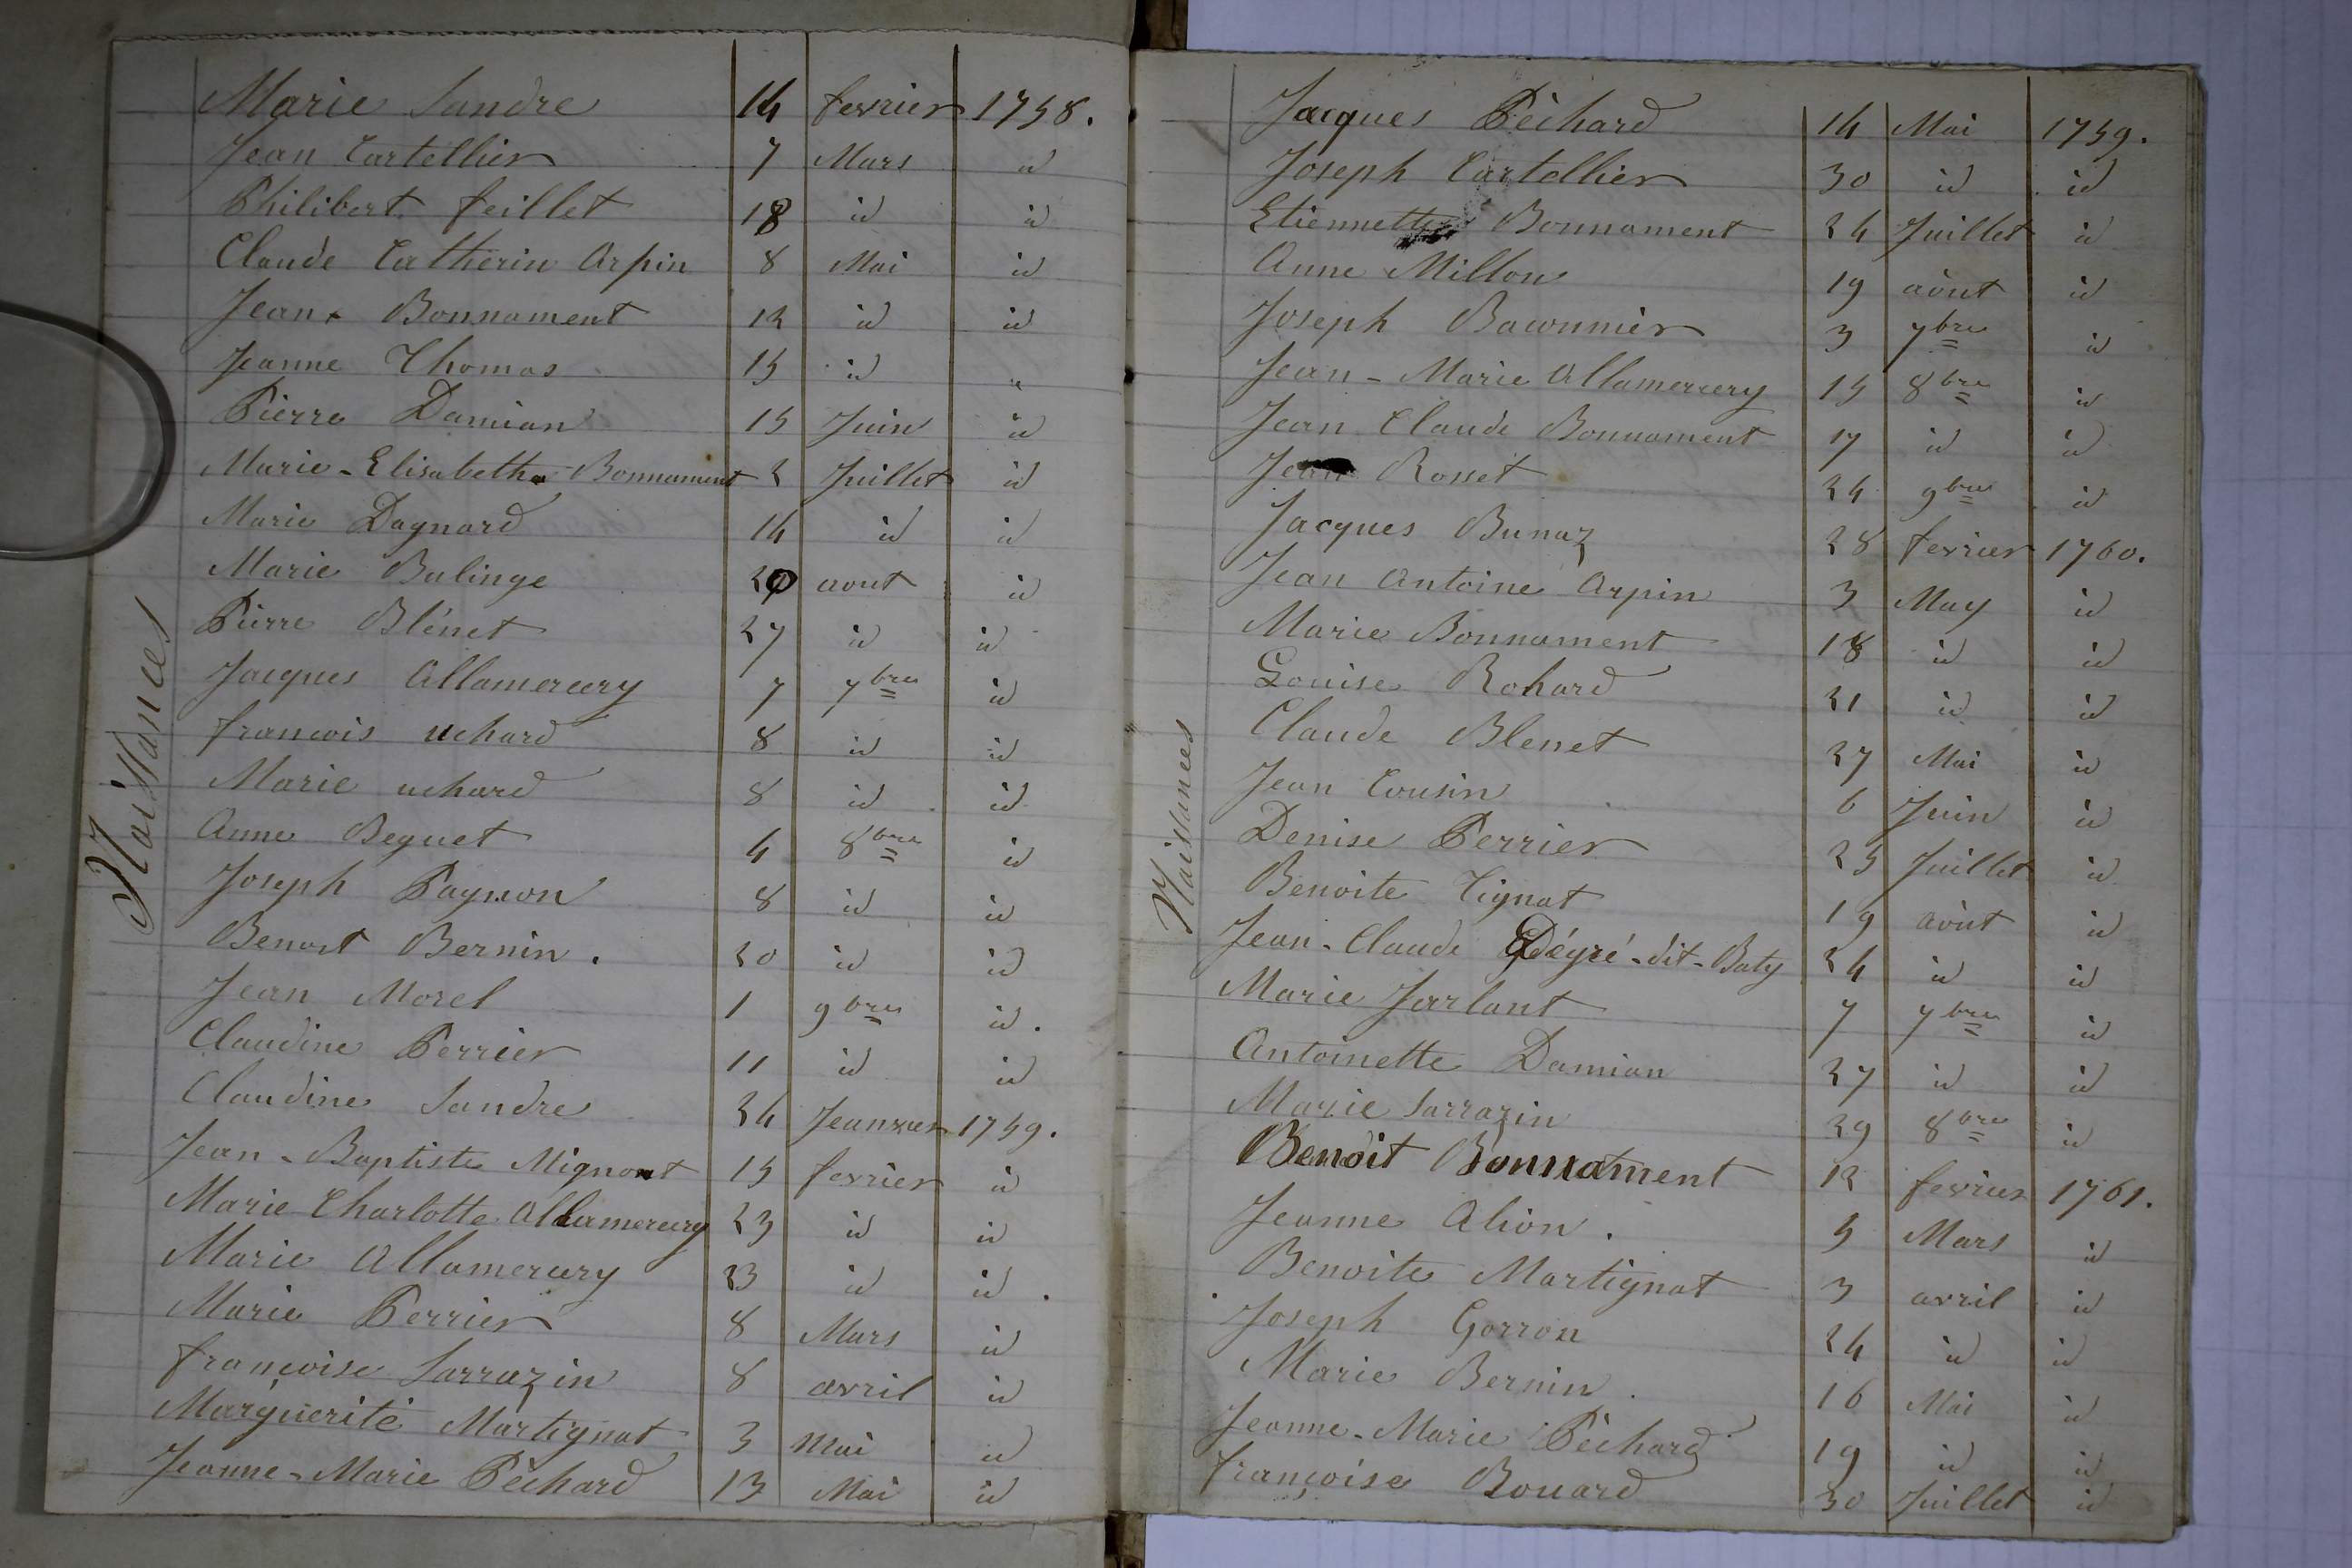 Naissances
Marie Sandre 14 fevrier 1758.
Jean Cartellier 7 Mars id
Philibert feillet 18 id id
Claude Catherin Arpin 8 Mai id
Jean Bonnament 12 id id
Jeanne Thomas 15 id "
Pierre Damian 15 Juin id
Marie-Elisabeth Bonnament 2 Juillet id
Marie Dagnard 14 id id
Marie Bulinge 20 aout id
Pierre Blénet 27 id id
Jacques Allamercery 7 7bre id
francois uchard 8 id id
Marie uchard 8 id id
Anne Beguet 4 8bre id
Joseph Pagnon 8 id id
Benoit Bernin. 20 id id
Jean Morel 1 9bre id.
Claudine Perrier 11 id id
Claudine Sandre 24 Jeanvier 1759.
Jean-Baptiste Mignont 15 fevrier id
Marie-Charlotte Allamercery 23 id id
Marie Allamercery 23 id id.
Marie Perrier 8 Mars id
françoise Sarrazin 8 avril id
Marguerite Martignat 3 Mai id
Jeanne-Marie Péchard 13 Mai id
Naissances
Jacques Péchard 14 Mai 1759.
Joseph Cartellier 30 id id
Etiennette Bonnament 24 Juillet id
Anne Millon 19 août id
Joseph Baconnier 3 7bre id
Jean-Marie Allamercery 15 8bre id
Jean Claude Bonnament 17 id id
Jean Rosset 24 9bre id
Jacques Bunaz 28 fevrier 1760.
Jean Antoine Arpin 3 May id
Marie Bonnament 18 id id
Louise Rohard 21 id id
Claude Blenet 27 Mai id
Jean Cousin 6 Juin id
Denise Perrier 25 Juillet id
Benoite Tignat 19 août id
Jean-Claude Dégré-dit-Baty 24 id id
Marie Jarlant 7 7bre id
Antoinette Damian 27 id id
Marie Sarrazin 29 8bre id
Benoit Bonnament 12 fevrier 1761.
Jeanne Alion. 5 Mars id
Benoite Martignat 3 avril id
Joseph Gorron 24 id id
Marie Bernin. 16 Mai id
Jeanne-Marie Péchard 19 id id
françoise Bouard 30 Juillet id